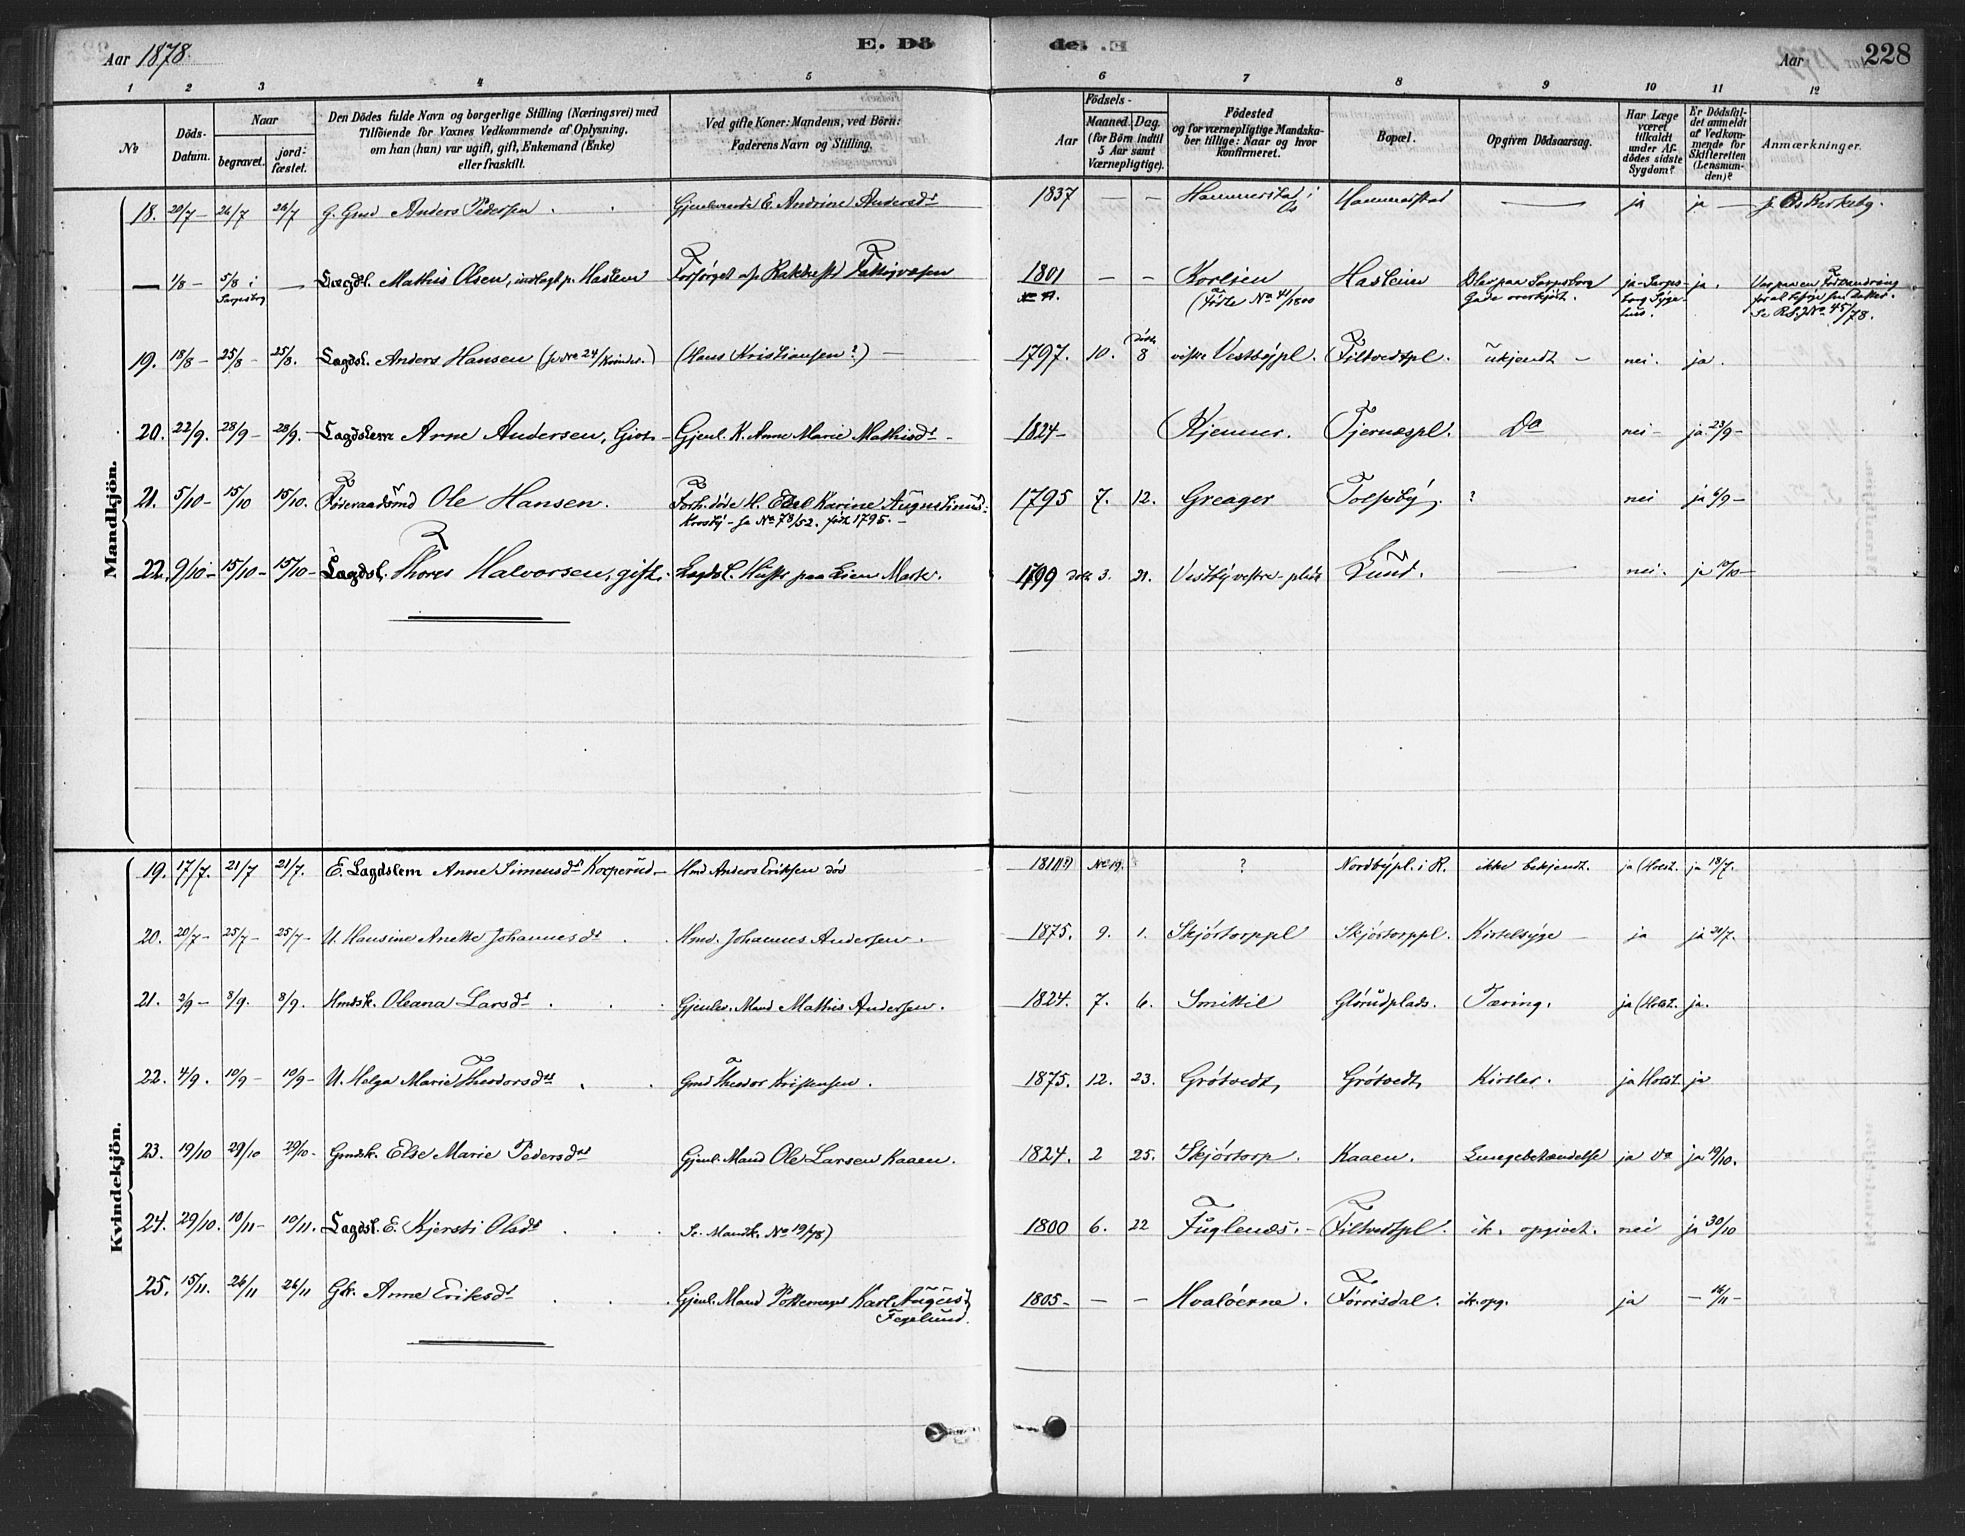 Aar 1878.
E. Dö
de. E
Aar
228
1 2 3 4 5 6 7 8 9 10 11 12
No
Döds-Datum.
Naar
begravet.
jord-fæstet.
Den Dödes fulde Navn og borgerlige Stilling (Næringsvei) med
Tilföiende for Voxnes Vedkommende af Oplysning,
om han (hun) var ugift, gift, Enkemand (Enke)
eller fraskilt.
Ved gifte Koner: Mandens, ved Börn:
Faderens Navn og Stilling.
Födsels-
Aar
Maaned. Dag.
(for Börn indtil
5 Aar samt
Værnepligtige).
Födested
og for værnepligtige Mandska-
ber tillige: Naar og hvor
konfirmeret.
Bopæl.
Opgiven Dödsaarsag.
Har Læge
været
tilkaldt
under Af-
dödes sidste
Sygdom?
Er Dödsfal-
det anmeldt
af Vedkom-
mende for
Skifteretten
(Lensman-
den)?
Anmærkninger.
Mandkjön.
18. 20/7 – 26/7 26/7 G. Gmd Anders Pedersen Gjenlevende E. Andrine Andersdr 1837 — — Hammerstad i Ås Hammerstad — ja ja —
— 1/8 – 5/8 i Sarpsborg — Lægdsl. Mathis Olsen, indlagt p. Haslem Forsørget af Rakkestd Fattigvæsen 1801 — — Korsjen (Føde No 41/1800 Haslem Blev paa Sarpsborg Gade overkjørt. ja – Sarpsborg Sygehus. ja. Var paa en Fodvandring
Se No 45/78.
19. 18/8 – 25/8 – 25/8. Lægdsl. Anders Hansen (se No 24/Kvinder.) (Hans Kristiansen?) — 1797. 10. døbt 8 vestre Vestbypl. Filtvedtpl. ukjendt – nei. ja.
20. 22/9. 28/9 – 28/9. Lagdslem Arne Andersen, Gift – Gjenl. K. Anne Marie Mathisdr – 1824 – Kjenner. Tjernæspl. Do nei – ja 23/9 –
21. 5/10 – 15/10 15/10. Føderaadsmd Ole Hansen. Forh. døde H. Edel Karine Augustinusd:
Krosby – se No 73/52. født 1795. – 1795 7. 12. Greager Tolfsby, ? nei ja 6/9 –
22. 9/10 – 15/10 – 15/10 – Lagdsl. Thores Halvorsen, gift. Lagdsl. Hustr paa Eien Mark. 1799 døbt 3. 21. Vestby vestre – plads Lund. — nei. ja 10/10 –
Kvindekjön.
19. 17/7. 21/7 21/7. E. Lagdslem Anne Simensdr Korperud – Hmd Anders Eriksen død 1811(?) No 19. ? Nordbypl. i R. ikke bekjendt. ja (Holst. ja 18/7.
20. 20/7 – 25/7 – 25/7 – U. Hansine Anette Johannesdr Hmd. Johannes Andersen. 1875. 9. 1. Skjørtorppl Skjørtorppl. Kirtelsyge – ja ja 21/7.
21. 2/9 – 8/9. 8/9. Hmdsk. Oleana Larsdr Gjenlev. Mand Mathis Andersen. 1824. 7. 6. Smittil Glørudplads. Tæring. ja (Holst. ja.
22. 4/9. 10/9 – 10/9 – U. Helga Marie Theodorsdtr Gmd Theodor Kristensen. 1875. 12. 23. Grøtvedt, Grøtvedt, Kirtler. ja Holst. ja
23. 19/10 29/10 29/10 – Gmdsk. Else Marie Pedersdtr Gjenl. Mand Ole Larsen Kaaen. 1824. 2 25. Skjørtorp. Kaaen. Lungebetændelse ja Do ja 19/10.
24. 29/10. 10/11 – 10/11. Lagdsl. E. Kjersti Olsdr Se. Mandk. No 19/78) 1800 6. 22 Fuglenes. – Filtvedtpl. ik. opgivet. nei ja 30/10
25. 15/11. 26/11 26/11 Gk. Anne Eriksdr Gjenl. Mand Pottemager Karl August
Fegelund. 1805 – — — Hvaløerne. Førrisdal. ik. opg. ja – 16/11 –